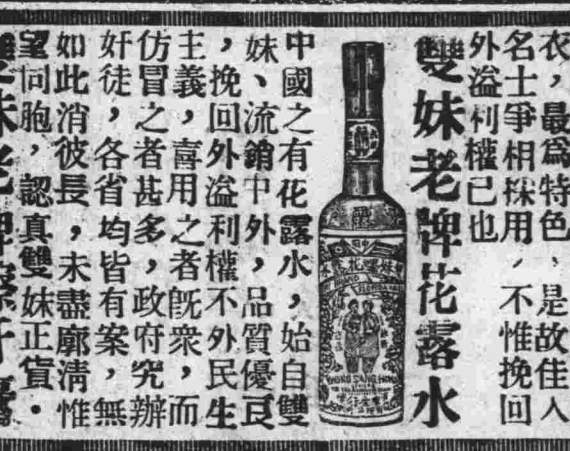 衣，最爲特色，是故佳人
名士爭相採用，不惟挽回
外溢利權已也
雙妹老牌花露水
中國之有花露水，始自雙
妹、流銷中外，品質優良
，挽回外溢利權不外民生
主義，喜用之者旣衆，而
仿冒之者甚多，政府究辦
奸徒，各省均皆有案，無
如此消彼長，未盡廓淸惟
望同胞，認真雙妹正貨．